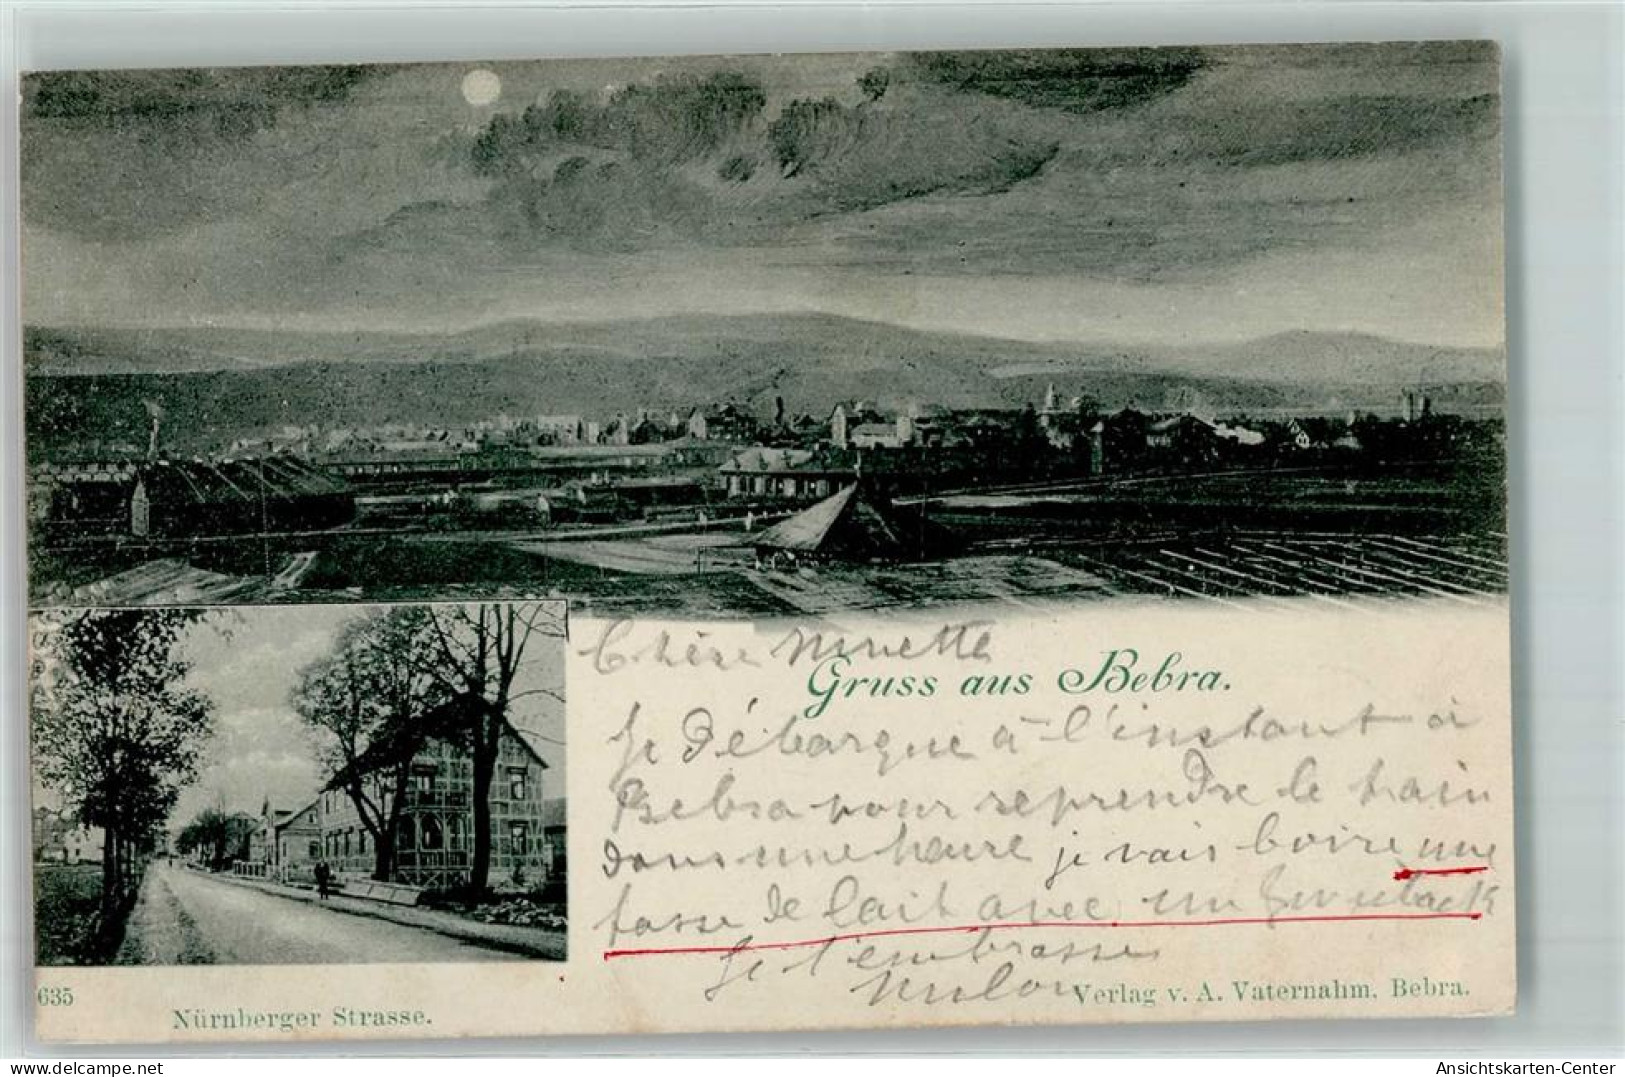 Chère Ninette
Gruss aus Bebra.
Je débarque à l'instant à
Bebra pour reprendre le train
dans une heure je vais boire une
tasse de lait avec un Zwieback
Je t'embrasse
635
Nürnberger Strasse.
Verlag v. A. Vaternahm, Bebra.
Ansichtskarten-Center